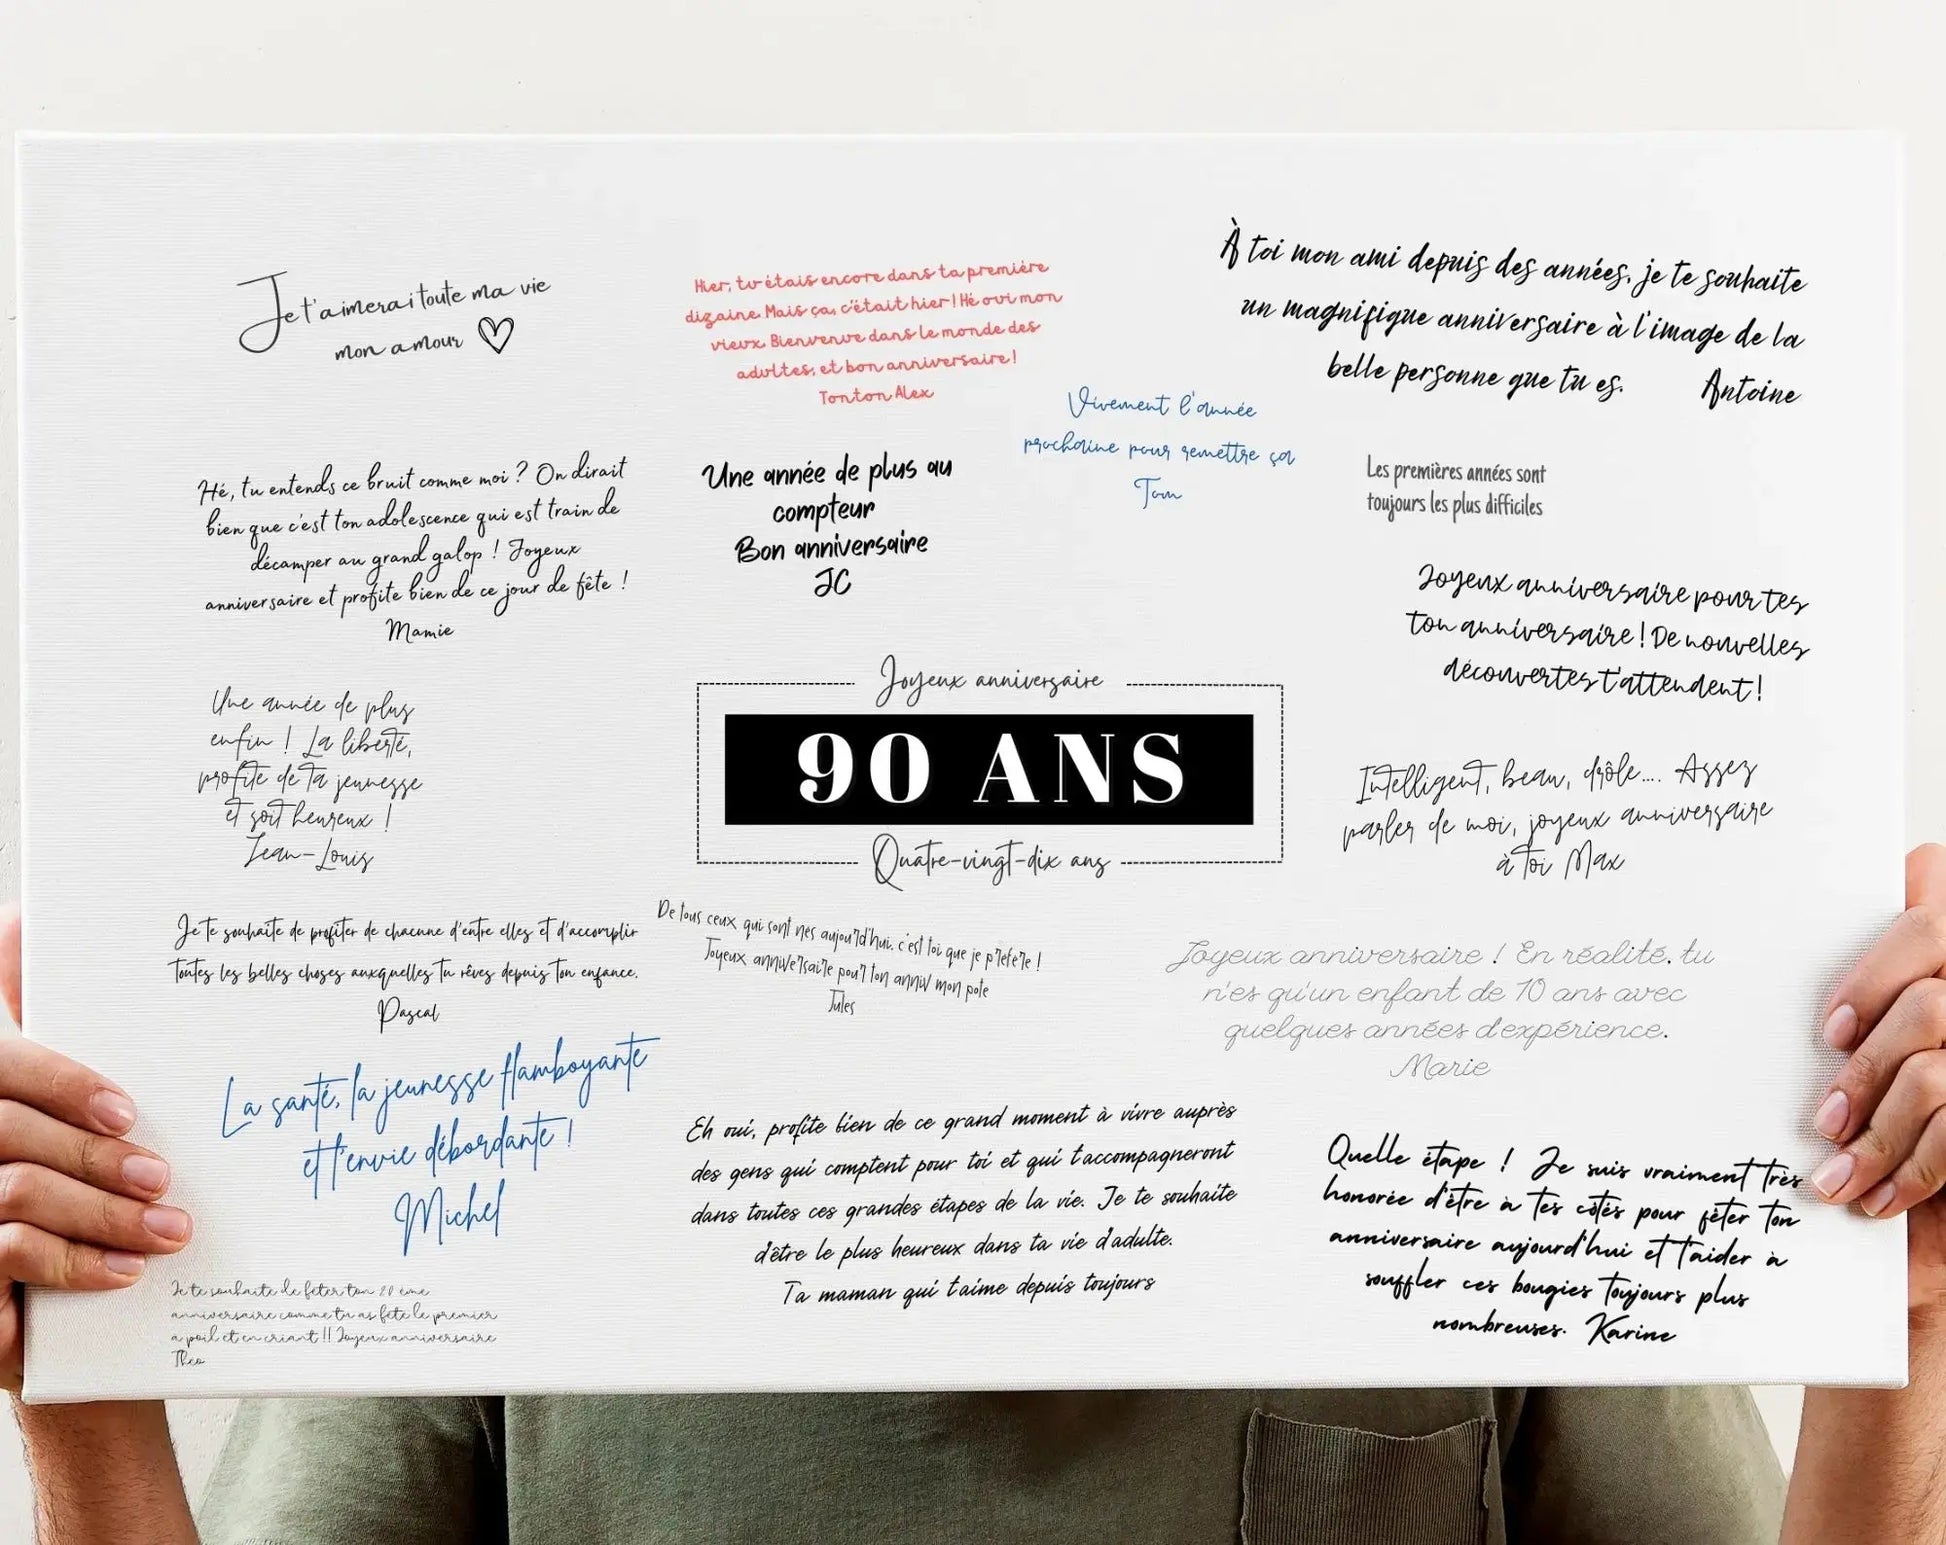 Je t'aimerai toute ma vie
mon amour
Hier, tu étais encore dans ta première
dizaine. Mais ça, c'était hier ! Hé oui mon
vieux. Bienvenue dans le monde des
adultes, et bon anniversaire !
Tonton Alex
À toi mon ami depuis des années, je te souhaite
un magnifique anniversaire à l'image de la
belle personne que tu es.
Antoine
Vivement l'année
prochaine pour remettre ça
Tom
Hé, tu entends ce bruit comme moi ? On dirait
bien que c'est ton adolescence qui est train de
décamper au grand galop ! Joyeux
anniversaire et profite bien de ce jour de fête !
Mamie
Une année de plus au
compteur
Bon anniversaire
JC
Les premières années sont
toujours les plus difficiles
Joyeux anniversaire pour tes
ton anniversaire ! De nouvelles
découvertes t'attendent !
Une année de plus
enfin ! La liberté,
profite de ta jeunesse
et soit heureux !
Jean-Louis
Joyeux anniversaire
90 ANS
Quatre-vingt-dix ans
Intelligent, beau, drôle.... Assez
parler de moi, joyeux anniversaire
à toi Max
Je te souhaite de profiter de chacune d'entre elles et d'accomplir
toutes les belles choses auxquelles tu rêves depuis ton enfance.
Pascal
De tous ceux qui sont nés aujourd'hui, c'est toi que je préfère !
Joyeux anniversaire pour ton anniv mon pote
Jules
Joyeux anniversaire ! En réalité, tu
n'es qu'un enfant de 10 ans avec
quelques années d'expérience.
Marie
La santé, la jeunesse flamboyante
et l'envie débordante !
Michel
Eh oui, profite bien de ce grand moment à vivre auprès
des gens qui comptent pour toi et qui t'accompagneront
dans toutes ces grandes étapes de la vie. Je te souhaite
d'être le plus heureux dans ta vie d'adulte.
Ta maman qui t'aime depuis toujours
Quelle étape ! Je suis vraiment très
honorée d'être à tes côtés pour fêter ton
anniversaire aujourd'hui et t'aider à
souffler ces bougies toujours plus
nombreuses. Karine
Je te souhaite de fêter ton 20 ème
anniversaire comme tu as fêté le premier
à poil et en criant !! Joyeux anniversaire
Théo